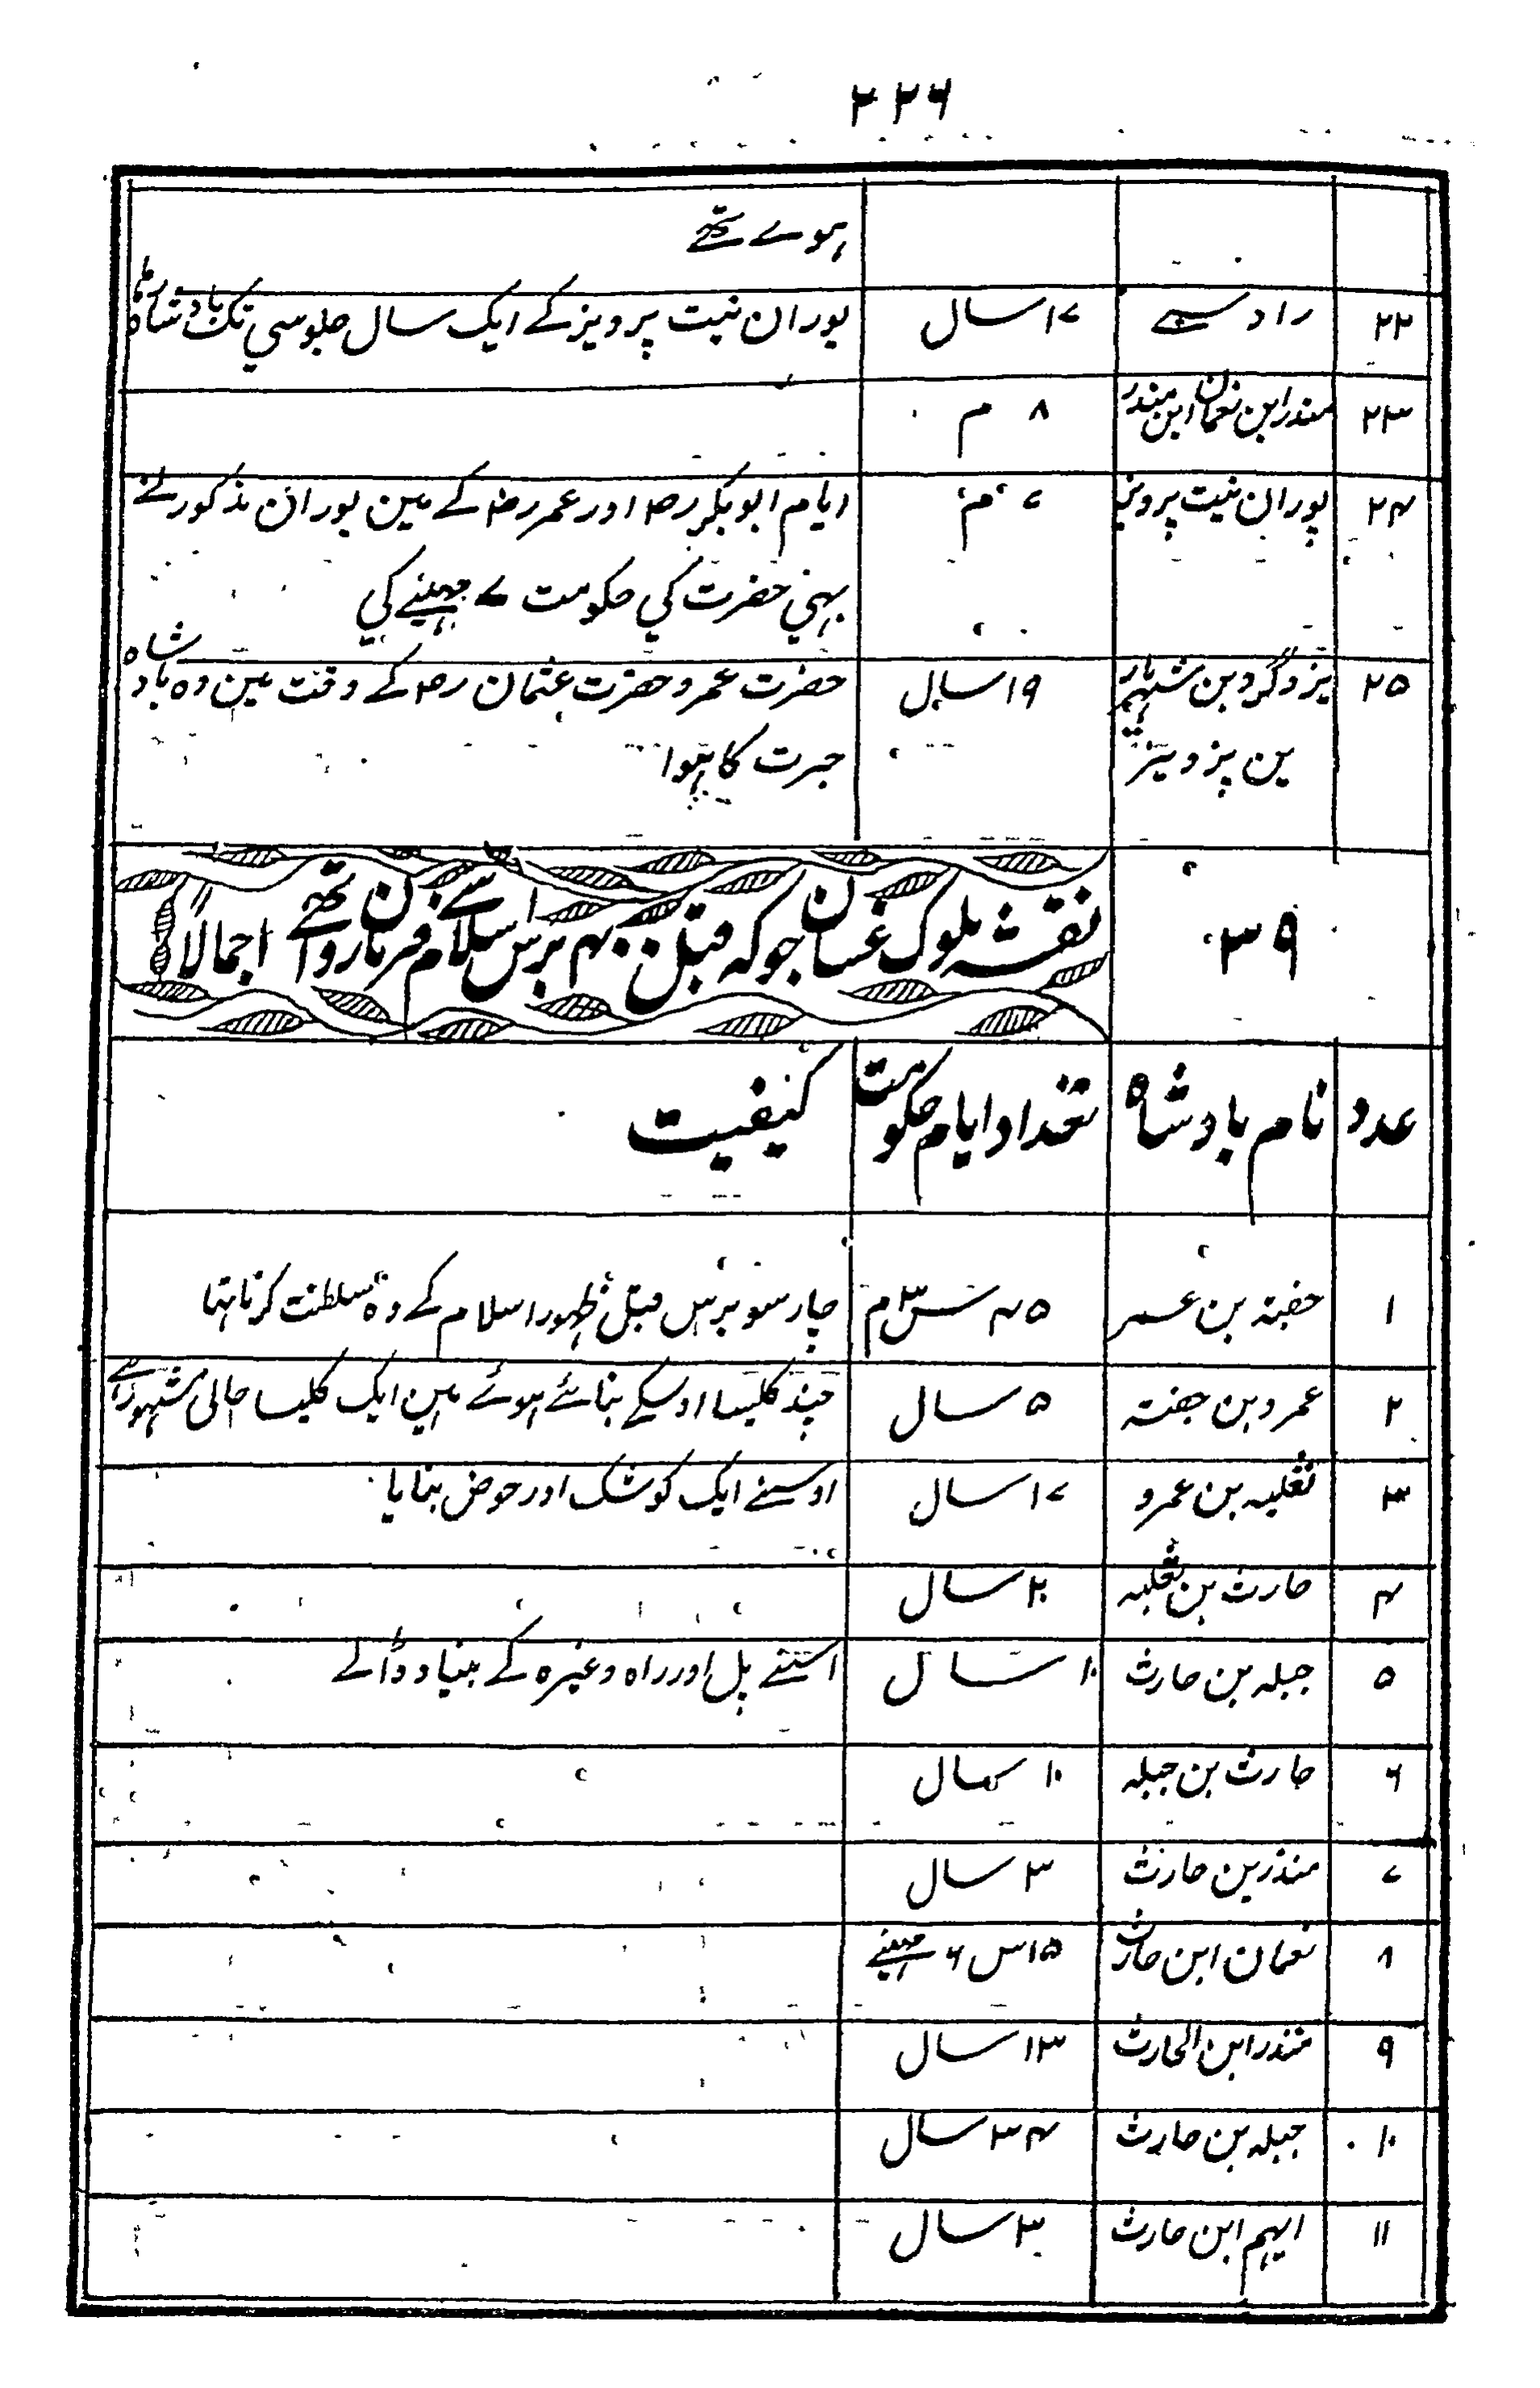 ۲۲۶
ہوے تھے
۲۲ رادے ۱۷ سال پوران بنت پرویز کے ایک سال جلوسي تک بادشاہ رہا
۲۳ منذر ابن نعمان ابن منذر ۸ م
۲۴ پوران بنت پرویز ۷ م ایام ابوبکر رض اور عمر رض کے مین پوران مذکور نے
بہنی حضرت کي حکومت ۷ مہینے کي
۲۵ یزدگرد بن شہریار ۱۹ سال حضرت عمر و حضرت عثمان رض کے وقت مین وہ بادشاہ
بن پرویز حیرت کا ہوا
۳۹ نقشہ ملوک غسان جوکہ قبل ۴۰۰ برس اسلام سے فرمان روا تھے اجمالاً
عدد نام بادشاہ تعداد ایام حکومت کیفیت
۱ جفنہ بن عمر ۴۵ س ۳ م چار سو برس قبل ظہور اسلام کے وہ سلطنت کرتا تہا
۲ عمرو بن جفنہ ۵ سال چند کلیسا اوسکے بنائے ہوئے مین ایک کلیسا حالی مشہور ہے
۳ ثعلبہ بن عمرو ۱۷ سال اوسنے ایک کوشک اور حوض بنایا
۴ حارث بن ثعلبہ ۲۰ سال
۵ جبلہ بن حارث ۱۰ سال اسنے پل اور راہ وغیرہ کے بنیاد ڈالے
۶ حارث بن جبلہ ۱۰ سال
۷ منذر بن حارث ۳ سال
۸ نعمان ابن حارث ۱۵ س ۶ مہینے
۹ منذر ابن الحارث ۱۳ سال
۱۰ جبلہ بن حارث ۳۴ سال
۱۱ ایہم ابن حارث ۳ سال